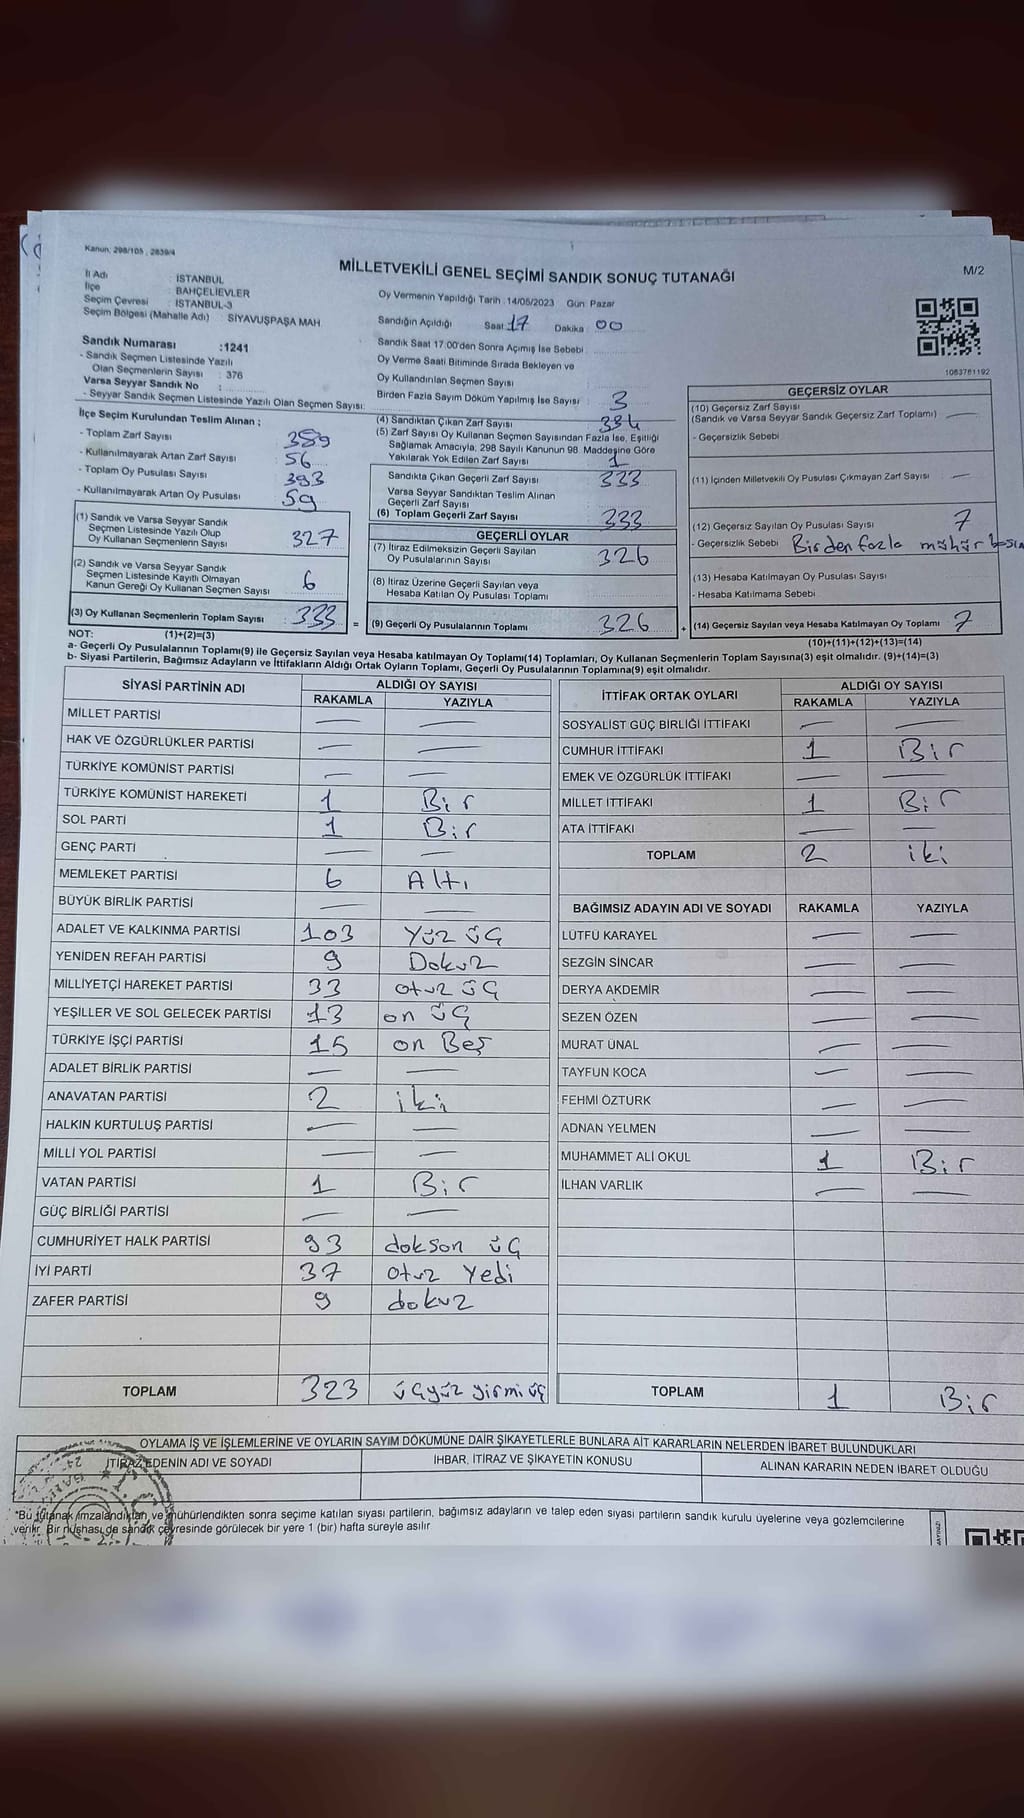 Kanun: 298/105 , 2839/4
MİLLETVEKİLİ GENEL SEÇİMİ SANDIK SONUÇ TUTANAĞI
M/2
İl Adı : İSTANBUL
İlçe : BAHÇELİEVLER
Seçim Çevresi : İSTANBUL-3
Seçim Bölgesi (Mahalle Adı) : SİYAVUŞPAŞA MAH.
Sandık Numarası :1241
- Sandık Seçmen Listesinde Yazılı
Olan Seçmenlerin Sayısı : 376
Varsa Seyyar Sandık No :
- Seyyar Sandık Seçmen Listesinde Yazılı Olan Seçmen Sayısı:
Oy Vermenin Yapıldığı Tarih : 14/05/2023 Gün: Pazar
Sandığın Açıldığı Saat: 17 Dakika: 00
Sandık Saat 17:00'den Sonra Açılmış İse Sebebi :
Oy Verme Saati Bitiminde Sırada Bekleyen ve
Oy Kullandırılan Seçmen Sayısı :
Birden Fazla Sayım Döküm Yapılmış İse Sayısı : 3
1063761192
İlçe Seçim Kurulundan Teslim Alınan ;
- Toplam Zarf Sayısı : 389
- Kullanılmayarak Artan Zarf Sayısı : 56
- Toplam Oy Pusulası Sayısı : 393
- Kullanılmayarak Artan Oy Pusulası : 59
(1) Sandık ve Varsa Seyyar Sandık
Seçmen Listesinde Yazılı Olup
Oy Kullanan Seçmenlerin Sayısı 327
(2) Sandık ve Varsa Seyyar Sandık
Seçmen Listesinde Kayıtlı Olmayan
Kanun Gereği Oy Kullanan Seçmen Sayısı 6
(3) Oy Kullanan Seçmenlerin Toplam Sayısı 333 =
(4) Sandıktan Çıkan Zarf Sayısı : 334
(5) Zarf Sayısı Oy Kullanan Seçmen Sayısından Fazla İse, Eşitliği
Sağlamak Amacıyla, 298 Sayılı Kanunun 98. Maddesine Göre
Yakılarak Yok Edilen Zarf Sayısı : 1
Sandıkta Çıkan Geçerli Zarf Sayısı : 333
Varsa Seyyar Sandıktan Teslim Alınan
Geçerli Zarf Sayısı
(6) Toplam Geçerli Zarf Sayısı : 333
GEÇERLİ OYLAR
(7) İtiraz Edilmeksizin Geçerli Sayılan
Oy Pusulalarının Sayısı : 326
(8) İtiraz Üzerine Geçerli Sayılan veya
Hesaba Katılan Oy Pusulası Toplamı :
(9) Geçerli Oy Pusulalarının Toplamı : 326 +
GEÇERSİZ OYLAR
(10) Geçersiz Zarf Sayısı
(Sandık ve Varsa Seyyar Sandık Geçersiz Zarf Toplamı) : —
- Geçersizlik Sebebi :
(11) İçinden Milletvekili Oy Pusulası Çıkmayan Zarf Sayısı : —
(12) Geçersiz Sayılan Oy Pusulası Sayısı : 7
- Geçersizlik Sebebi : Birden fazla mühür
(13) Hesaba Katılmayan Oy Pusulası Sayısı :
- Hesaba Katılmama Sebebi :
(14) Geçersiz Sayılan veya Hesaba Katılmayan Oy Toplamı : 7
NOT: (1)+(2)=(3) (10)+(11)+(12)+(13)=(14)
a- Geçerli Oy Pusulalarının Toplamı(9) ile Geçersiz Sayılan veya Hesaba katılmayan Oy Toplamı(14) Toplamları, Oy Kullanan Seçmenlerin Toplam Sayısına(3) eşit olmalıdır. (9)+(14)=(3)
b- Siyasi Partilerin, Bağımsız Adayların ve İttifakların Aldığı Ortak Oyların Toplamı, Geçerli Oy Pusulalarının Toplamına(9) eşit olmalıdır.
SİYASİ PARTİNİN ADI ALDIĞI OY SAYISI
RAKAMLA YAZIYLA
MİLLET PARTİSİ — —
HAK VE ÖZGÜRLÜKLER PARTİSİ — —
TÜRKİYE KOMÜNİST PARTİSİ — —
TÜRKİYE KOMÜNİST HAREKETİ 1 Bir
SOL PARTİ 1 Bir
GENÇ PARTİ — —
MEMLEKET PARTİSİ 6 Altı
BÜYÜK BİRLİK PARTİSİ — —
ADALET VE KALKINMA PARTİSİ 103 Yüz üç
YENİDEN REFAH PARTİSİ 9 Dokuz
MİLLİYETÇİ HAREKET PARTİSİ 33 otuz üç
YEŞİLLER VE SOL GELECEK PARTİSİ 13 on üç
TÜRKİYE İŞÇİ PARTİSİ 15 on Beş
ADALET BİRLİK PARTİSİ — —
ANAVATAN PARTİSİ 2 iki
HALKIN KURTULUŞ PARTİSİ — —
MİLLİ YOL PARTİSİ — —
VATAN PARTİSİ 1 Bir
GÜÇ BİRLİĞİ PARTİSİ — —
CUMHURİYET HALK PARTİSİ 93 dokson üç
İYİ PARTİ 37 otuz Yedi
ZAFER PARTİSİ 9 dokuz
TOPLAM 323 üçyüz yirmi üç
İTTİFAK ORTAK OYLARI ALDIĞI OY SAYISI
RAKAMLA YAZIYLA
SOSYALİST GÜÇ BİRLİĞİ İTTİFAKI — —
CUMHUR İTTİFAKI 1 Bir
EMEK VE ÖZGÜRLÜK İTTİFAKI — —
MİLLET İTTİFAKI 1 Bir
ATA İTTİFAKI — —
TOPLAM 2 iki
BAĞIMSIZ ADAYIN ADI VE SOYADI RAKAMLA YAZIYLA
LÜTFÜ KARAYEL — —
SEZGİN SİNCAR — —
DERYA AKDEMİR — —
SEZEN ÖZEN — —
MURAT ÜNAL — —
TAYFUN KOCA — —
FEHMİ ÖZTÜRK — —
ADNAN YELMEN — —
MUHAMMET ALİ OKUL 1 Bir
İLHAN VARLIK — —
TOPLAM 1 Bir
OYLAMA İŞ VE İŞLEMLERİNE VE OYLARIN SAYIM DÖKÜMÜNE DAİR ŞİKAYETLERLE BUNLARA AİT KARARLARIN NELERDEN İBARET BULUNDUKLARI
İTİRAZ EDENİN ADI VE SOYADI İHBAR, İTİRAZ VE ŞİKAYETİN KONUSU ALINAN KARARIN NEDEN İBARET OLDUĞU
*Bu tutanak imzalandıktan ve mühürlendikten sonra seçime katılan siyasi partilerin, bağımsız adayların ve talep eden siyasi partilerin sandık kurulu üyelerine veya gözlemcilerine
verilir. Bir nüshası da sandık çevresinde görülecek bir yere 1 (bir) hafta süreyle asılır